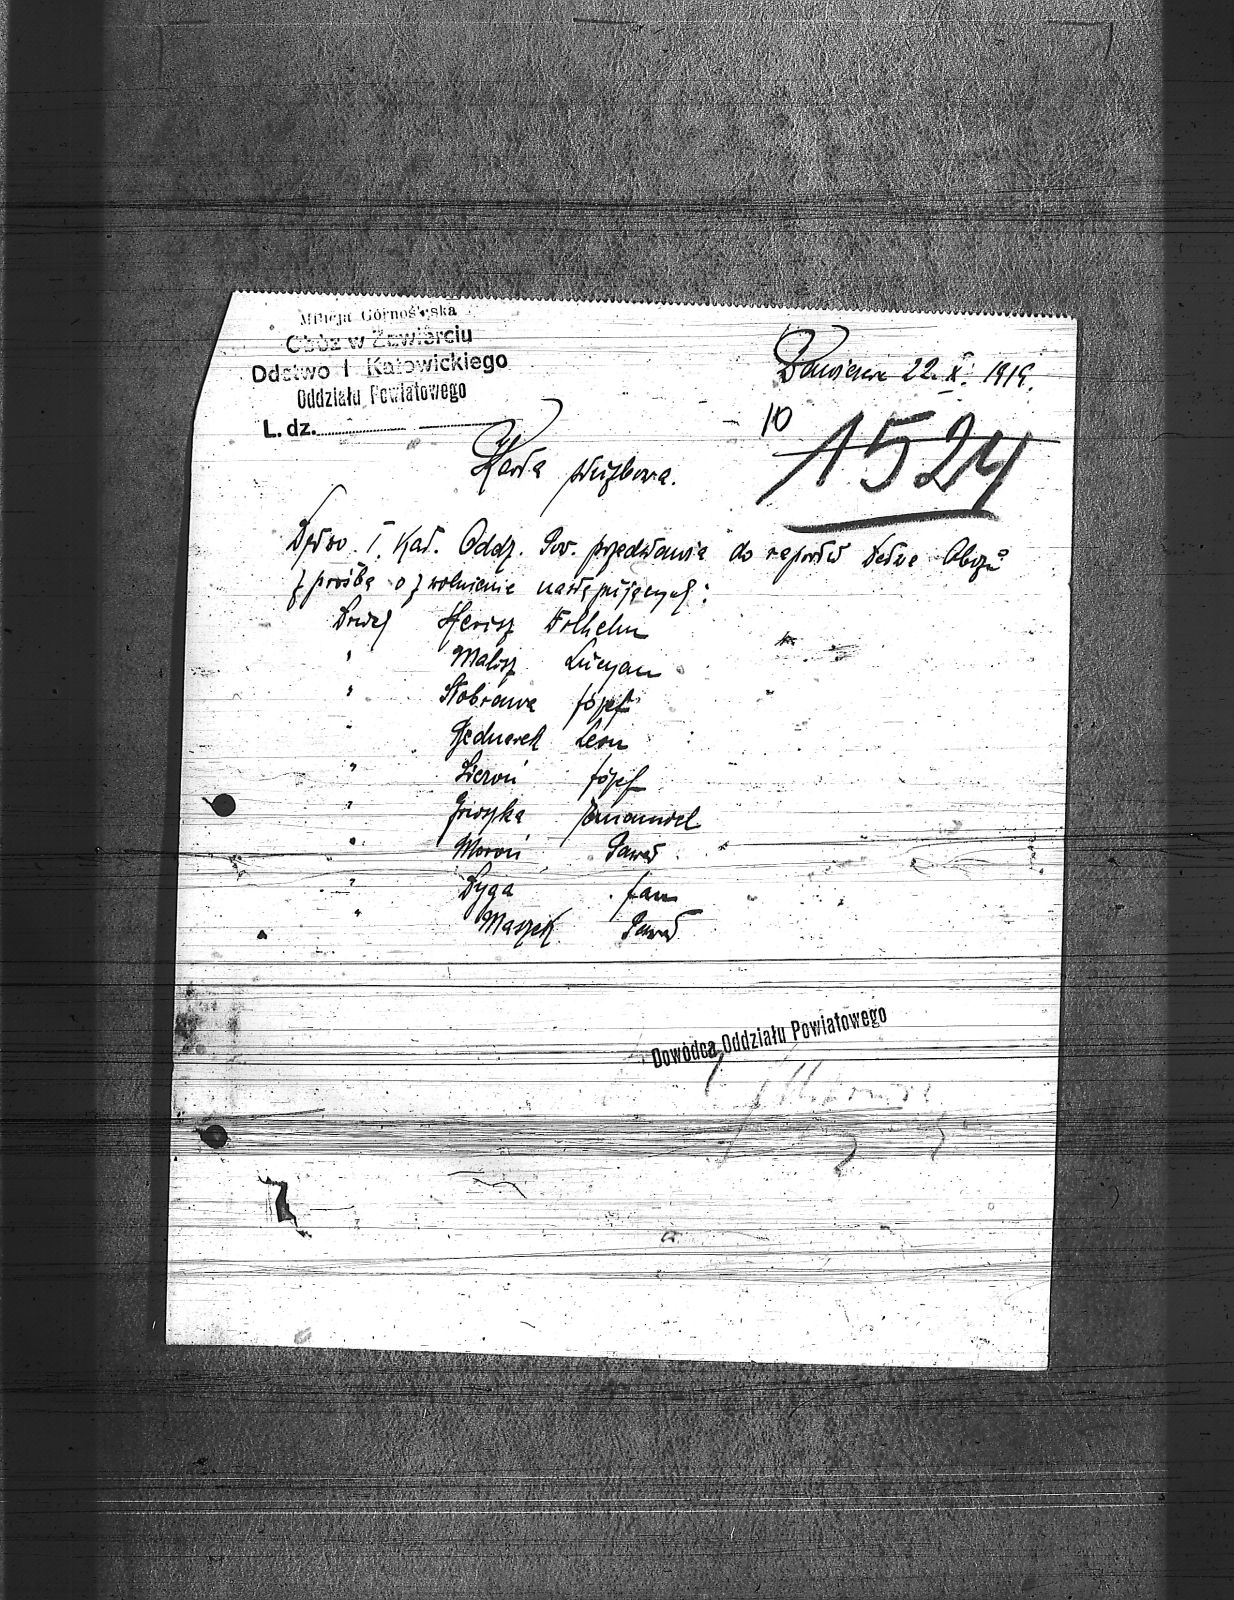 Milicja Górnośląska
Obóz w Zawierciu
Ddctwo I Katowickiego
Oddziału Powiatowego
L. dz.
Zawiercie 22. X. 1919.
10
1524
Karta służbowa.
I. Kat. Oddz. Pow. przedstawia do raportu Obozu
z prośbą o zwolnienie następujących:
Herisz Wilhelm
" Malisz Lucyan
" Kobrawa Józef
" Jednorek Leon
" Józef
" Emanuel
" Moroń Paweł
" Dyga Jan
" Maszek Paweł
Dowódca Oddziału Powiatowego